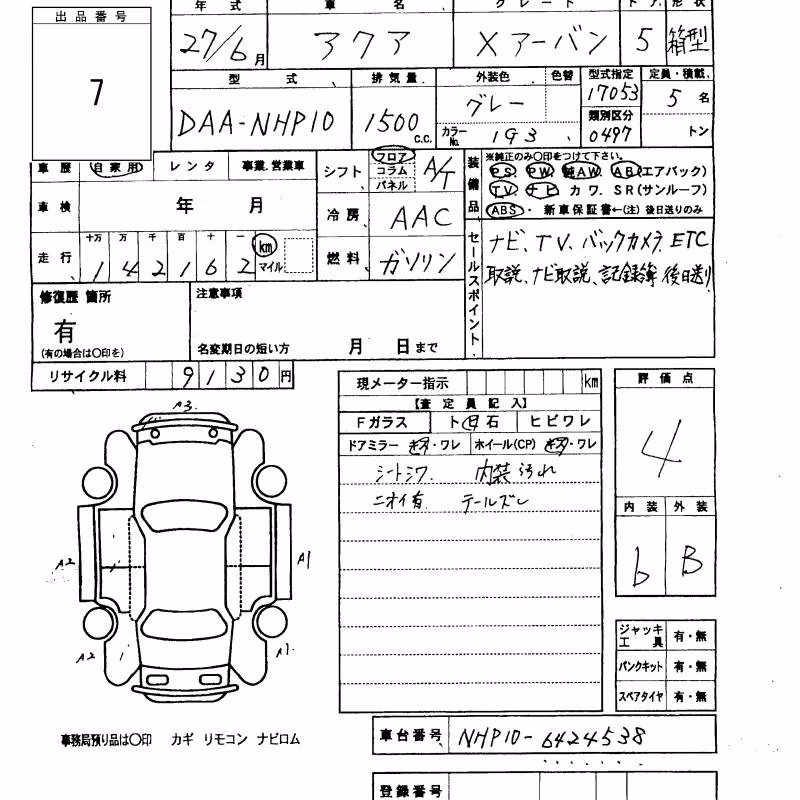 出品番号
7
年式 車名 グレード ドア 形状
27/6月 アクア Xアーバン 5 箱型
型式 排気量 外装色 色替 型式指定 定員・積載
DAA-NHP10 1500 C.C. グレー 17053 5名
カラーNo. 1G3 類別区分 0497 トン
車歴 自家用 レンタ 事業.営業車
シフト フロア コラム パネル A/T
装備品 ※純正のみ○印をつけて下さい。
PS PW 純AW AB(エアバック)
TV ナビ カワ SR(サンルーフ)
ABS・新車保証書←(注)後日送りのみ
車検 年 月
冷房 AAC
走行 十万 万 千 百 十 一 km マイル
142162
燃料 ガソリン
セールスポイント
ナビ、TV、バックカメラ ETC
取説、ナビ取説、記録簿 後日送り
修復歴 箇所
有
(有の場合は○印を)
注意事項
名変期日の短い方 月 日まで
リサイクル料 9130円
現メーター指示 km
【査定員記入】
Fガラス ト 石 ヒビワレ
ドアミラー キズ・ワレ ホイール(CP) キズ・ワレ
シートシワ 内装汚れ
ニオイ有 テールズレ
評価点
4
内装 外装
b B
A3.
A2
A1
A2
A1
ジャッキ工具 有・無
パンクキット 有・無
スペアタイヤ 有・無
事務局預り品は○印 カギ リモコン ナビロム
車台番号 NHP10-6424538
登録番号